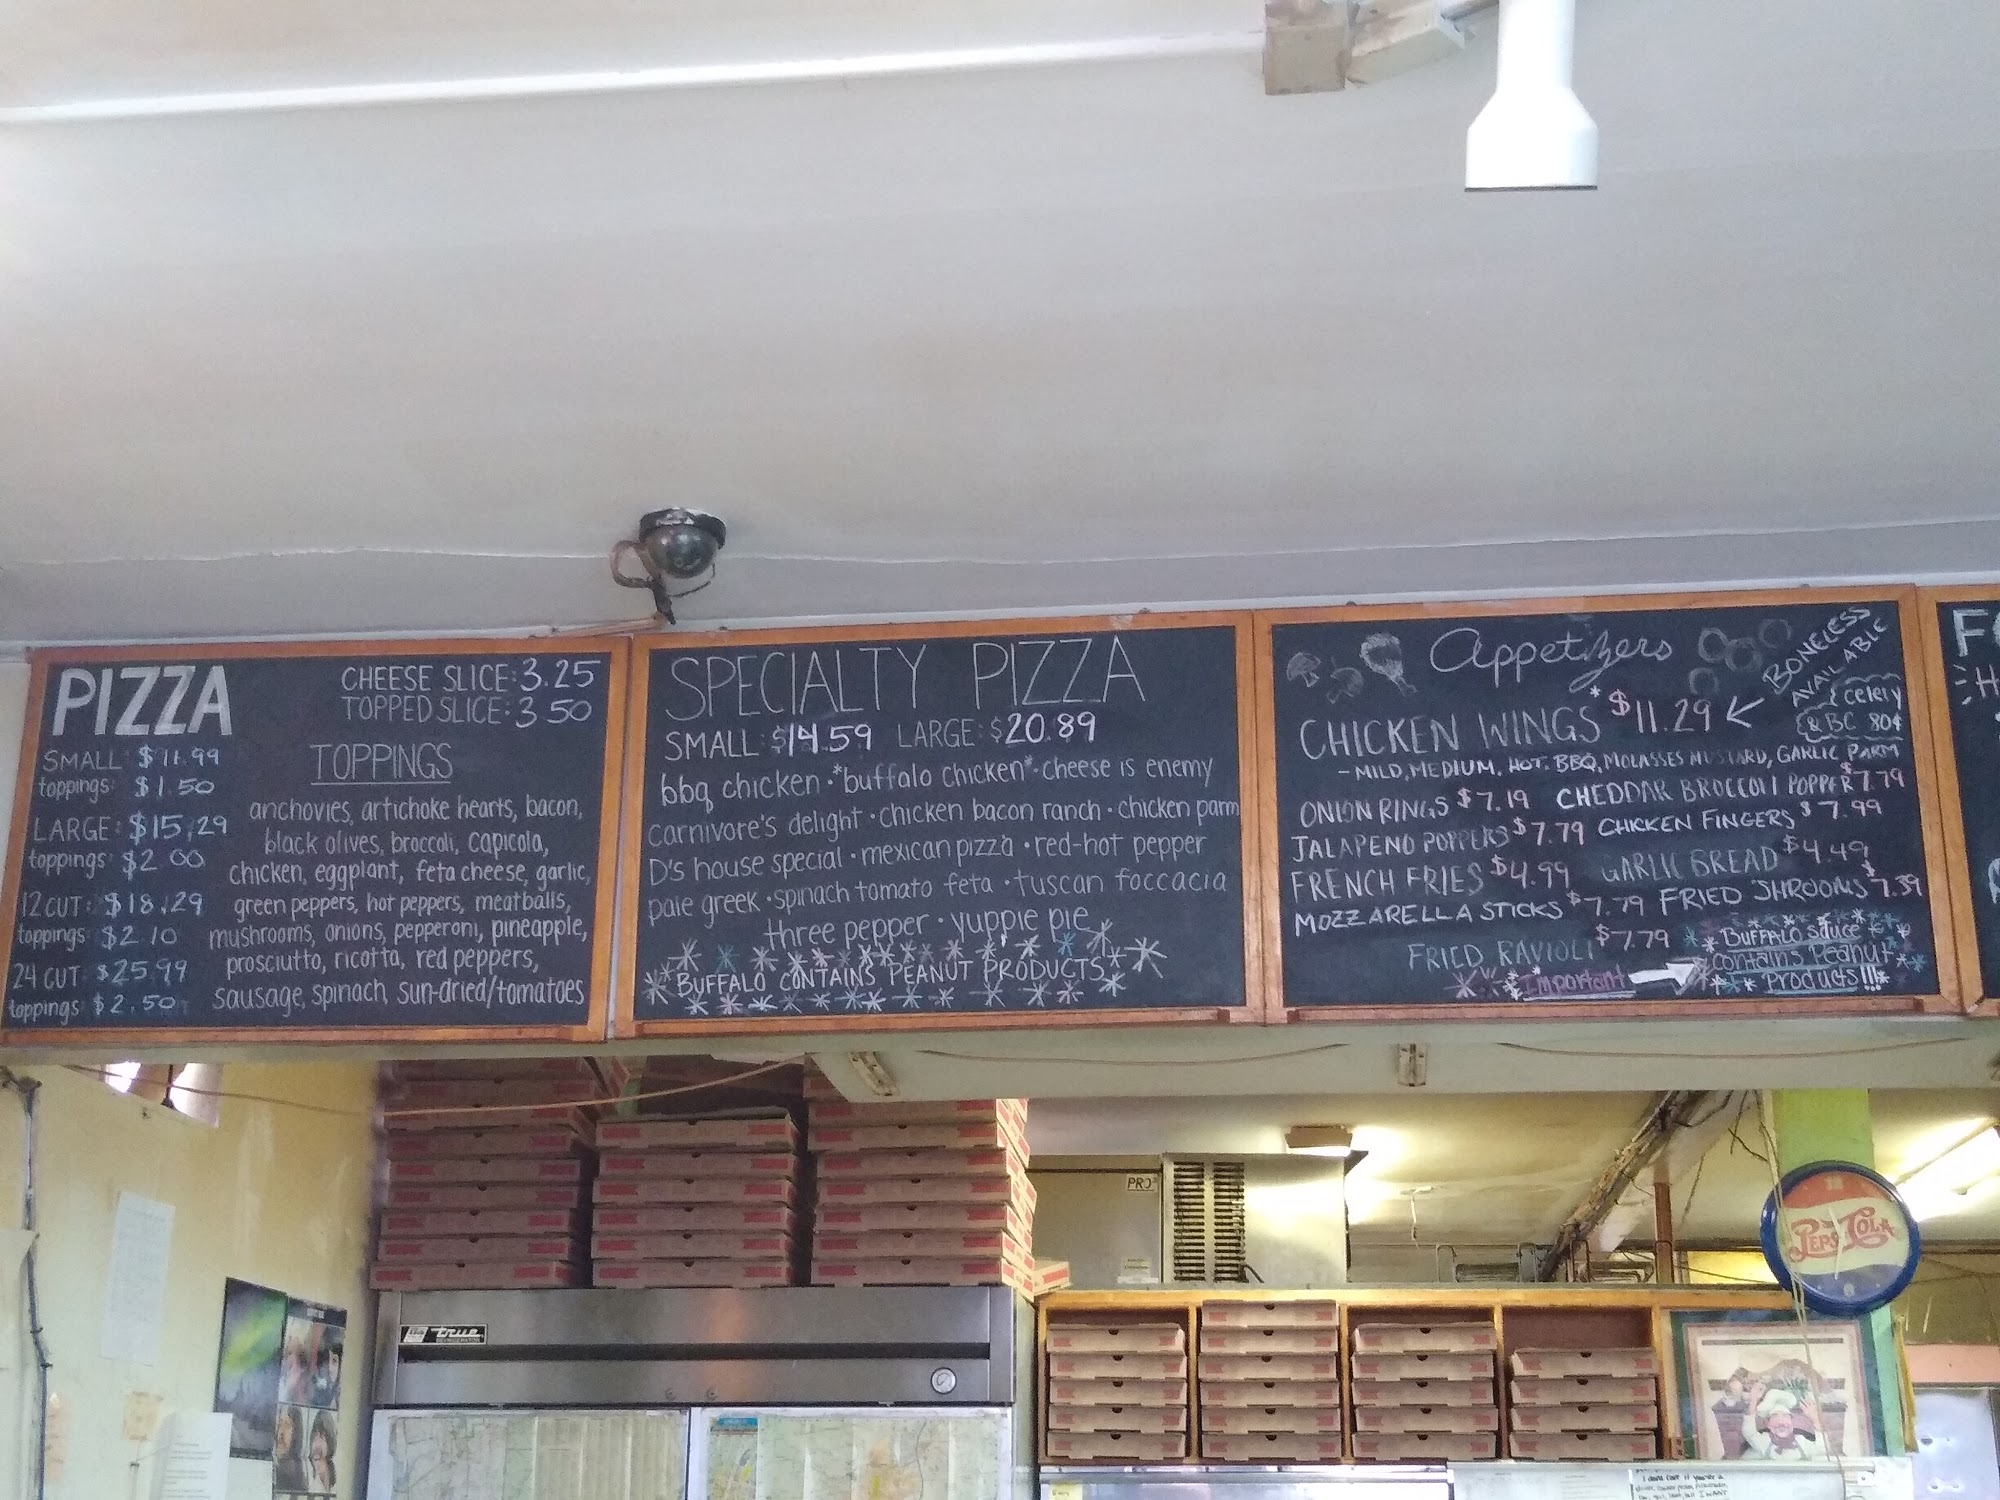 PIZZA
CHEESE SLICE: 3.25
TOPPED SLICE: 3 50
SMALL: $11.99
toppings: $1.50
LARGE: $15.29
toppings: $2.00
12 CUT: $18.29
toppings: $2.10
24 CUT: $25.99
toppings: $2.50
TOPPINGS
anchovies, artichoke hearts, bacon,
black olives, broccoli, capicola,
chicken, eggplant, feta cheese, garlic,
green peppers, hot peppers, meatballs,
mushrooms, onions, pepperoni, pineapple,
prosciutto, ricotta, red peppers,
sausage, spinach, sun-dried/tomatoes
SPECIALTY PIZZA
SMALL: $14.59 LARGE: $20.89
bbq chicken · *buffalo chicken* · cheese is enemy
carnivore's delight · chicken bacon ranch · chicken parm
D's house special · mexican pizza · red-hot pepper
pale greek · spinach tomato feta · tuscan foccacia
three pepper · yuppie pie
BUFFALO CONTAINS PEANUT PRODUCTS
Appetizers
BONELESS
AVAILABLE
CHICKEN WINGS* $11.29
celery
& BC 80¢
- MILD, MEDIUM, HOT, BBQ, MOLASSES MUSTARD, GARLIC PARM
ONION RINGS $7.19 CHEDDAR BROCCOLI POPPER $7.79
JALAPENO POPPERS $7.79 CHICKEN FINGERS $7.99
FRENCH FRIES $4.99 GARLIC BREAD $4.49
MOZZARELLA STICKS $7.79 FRIED SHROOMS $7.39
FRIED RAVIOLI $7.79
Important
BUFFALO sauce
contains Peanut
Products!!!
F
PRO3
true
REFRIGERATION
PEPSI COLA